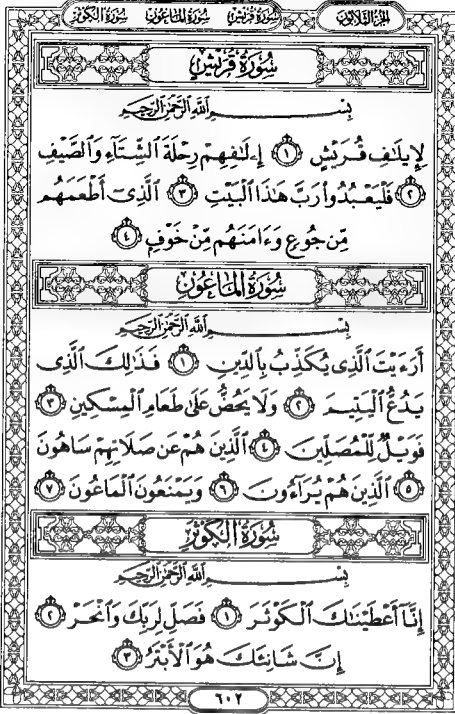 الجزء الثلاثون سورة قريش سورة الماعون سورة الكوثر
سُورَةُ قُرَيْشٍ
بِسْمِ اللَّهِ الرَّحْمَٰنِ الرَّحِيمِ
لِإِيلَٰفِ قُرَيْشٍ ١ إِۦلَٰفِهِمْ رِحْلَةَ ٱلشِّتَآءِ وَٱلصَّيْفِ
٢ فَلْيَعْبُدُوا۟ رَبَّ هَٰذَا ٱلْبَيْتِ ٣ ٱلَّذِىٓ أَطْعَمَهُم
مِّن جُوعٍ وَءَامَنَهُم مِّنْ خَوْفٍۭ ٤
سُورَةُ المَاعُونِ
بِسْمِ اللَّهِ الرَّحْمَٰنِ الرَّحِيمِ
أَرَءَيْتَ ٱلَّذِى يُكَذِّبُ بِٱلدِّينِ ١ فَذَٰلِكَ ٱلَّذِى
يَدُعُّ ٱلْيَتِيمَ ٢ وَلَا يَحُضُّ عَلَىٰ طَعَامِ ٱلْمِسْكِينِ ٣
فَوَيْلٌ لِّلْمُصَلِّينَ ٤ ٱلَّذِينَ هُمْ عَن صَلَاتِهِمْ سَاهُونَ
٥ ٱلَّذِينَ هُمْ يُرَآءُونَ ٦ وَيَمْنَعُونَ ٱلْمَاعُونَ ٧
سُورَةُ الكَوْثَرِ
بِسْمِ اللَّهِ الرَّحْمَٰنِ الرَّحِيمِ
إِنَّآ أَعْطَيْنَٰكَ ٱلْكَوْثَرَ ١ فَصَلِّ لِرَبِّكَ وَٱنْحَرْ ٢
إِنَّ شَانِئَكَ هُوَ ٱلْأَبْتَرُ ٣
٦٠٢